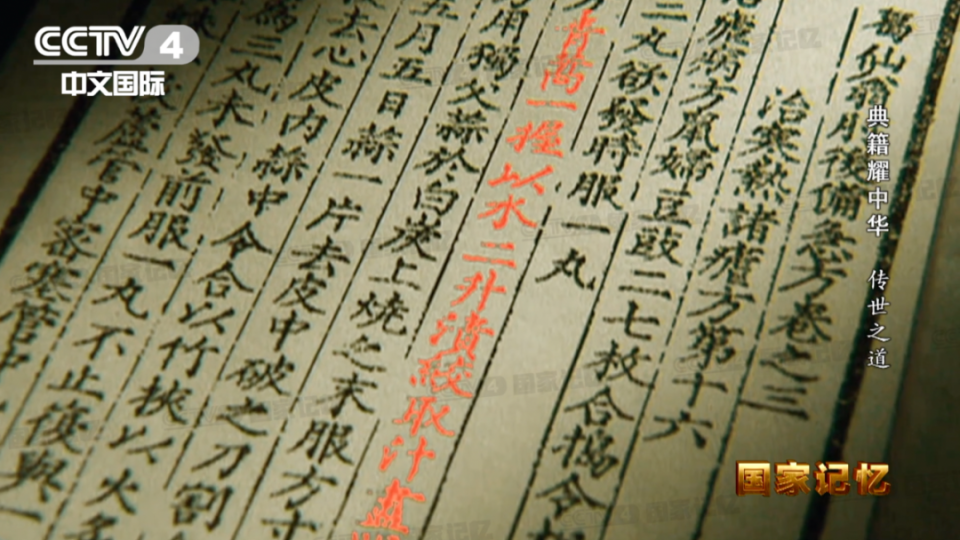 CCTV 4
中文国际
葛仙翁肘後備急方卷之三
治寒熱諸瘧方第十六
治瘧病方鼠婦豆豉二七枚合搗令
二丸欲發時服一丸
青蒿一握以水二升漬絞取汁盡
用獨父蒜於白炭上燒之末服方寸
五月五日蒜一片去皮中破之刀割
去心皮内蒜中令合以竹挾以火
為三丸未發前服一丸不止復與一
葢管中審塞管中
典籍耀中华 传世之道
国家记忆